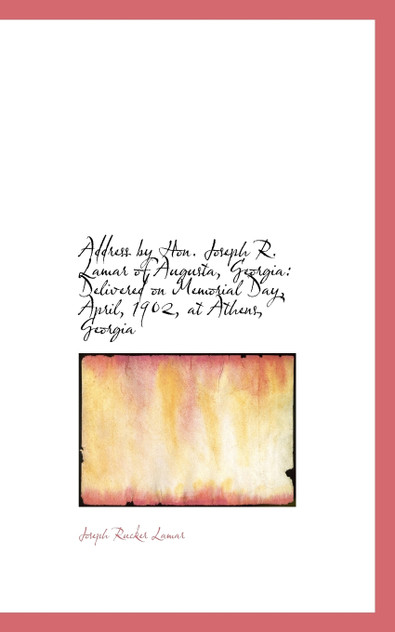 Address by Hon. Joseph R.
Lamar of Augusta, Georgia:
Delivered on Memorial Day,
April, 1902, at Athens,
Georgia
Joseph Rucker Lamar